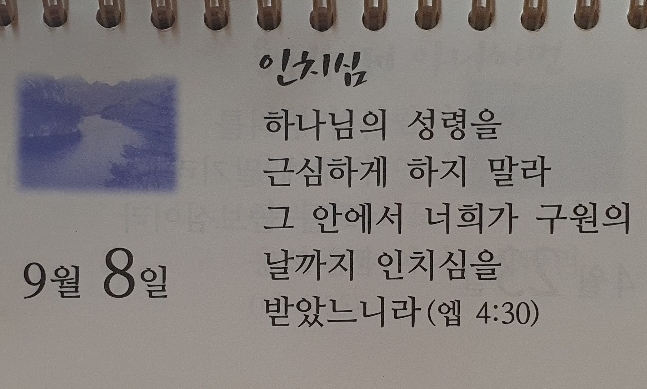 인치심
하나님의 성령을
근심하게 하지 말라
그 안에서 너희가 구원의
날까지 인치심을
받았느니라(엡 4:30)
9월 8일